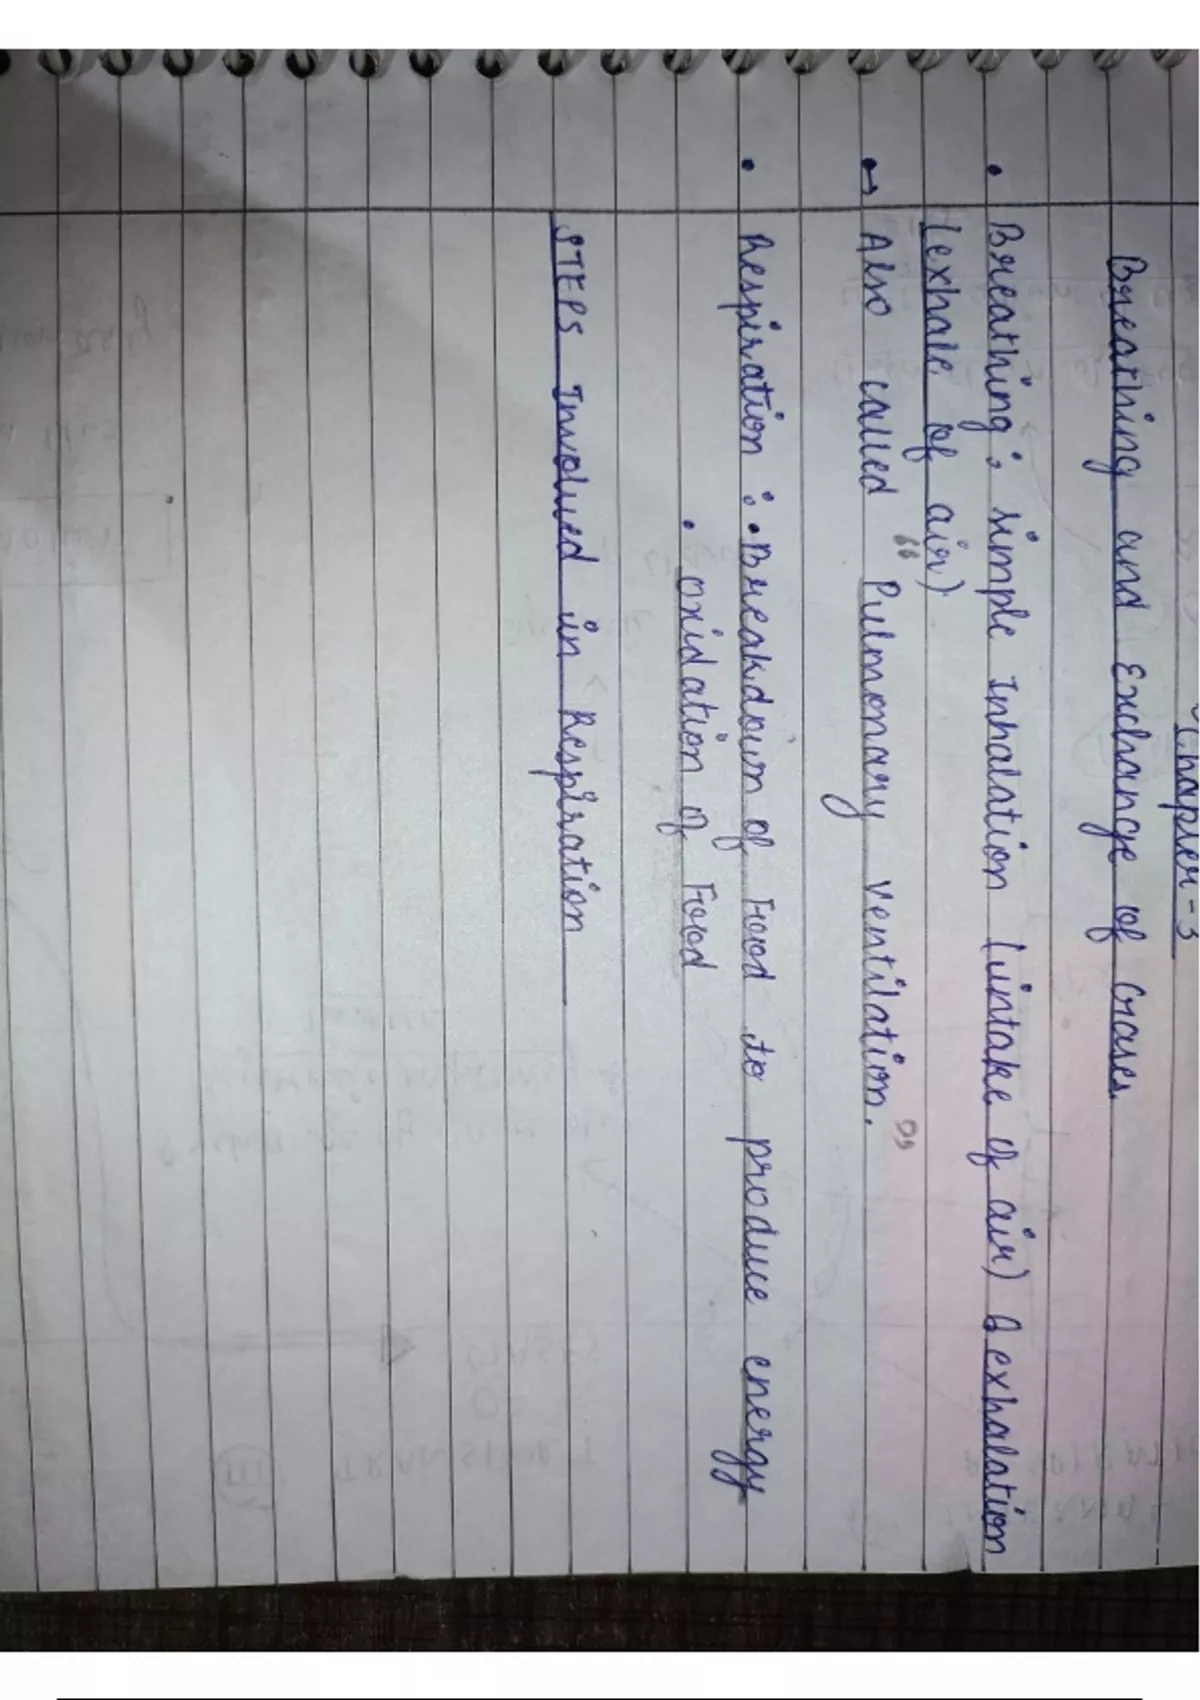 Chapter - 3
Breathing and Exchange of Gases.
• Breathing : simple Inhalation (intake of air) & exhalation
(exhale of air)
→ Also called " Pulmonary Ventilation. "
• Respiration : • Breakdown of Food to produce energy
• oxidation of Food
STEPS Involved in Respiration